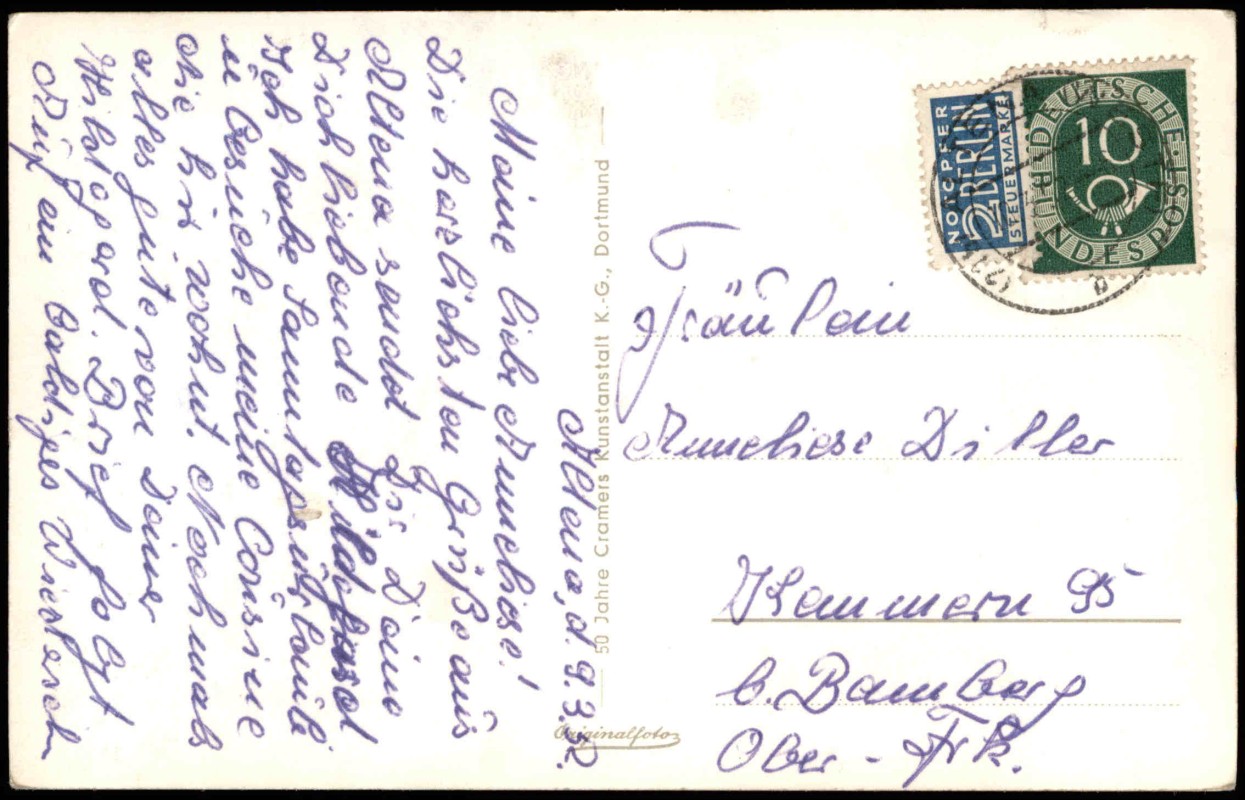 Altena, d. 9.3.52.
Meine liebe Anneliese!
Die herzlichsten Grüße aus
Altena sendet Dir Deine
Dich liebende Hildegard
Ich habe Samntagsurlaub
u besuche meine Cousine
die hir wohnt. Nochmals
alles gute von Deiner
Hildegard. Brief folgt
Auf ein baldiges Wiedersehn
50 Jahre Cramers Kunstanstalt K.-G., Dortmund
Originalfotoz
NOTOPFER
2 BERLIN
STEUERMARKE
DEUTSCHE
BUNDESPOST
10
Fräulein
Anneliese Diller
Kemmern 95
b. Bamberg
Ober-Frk.